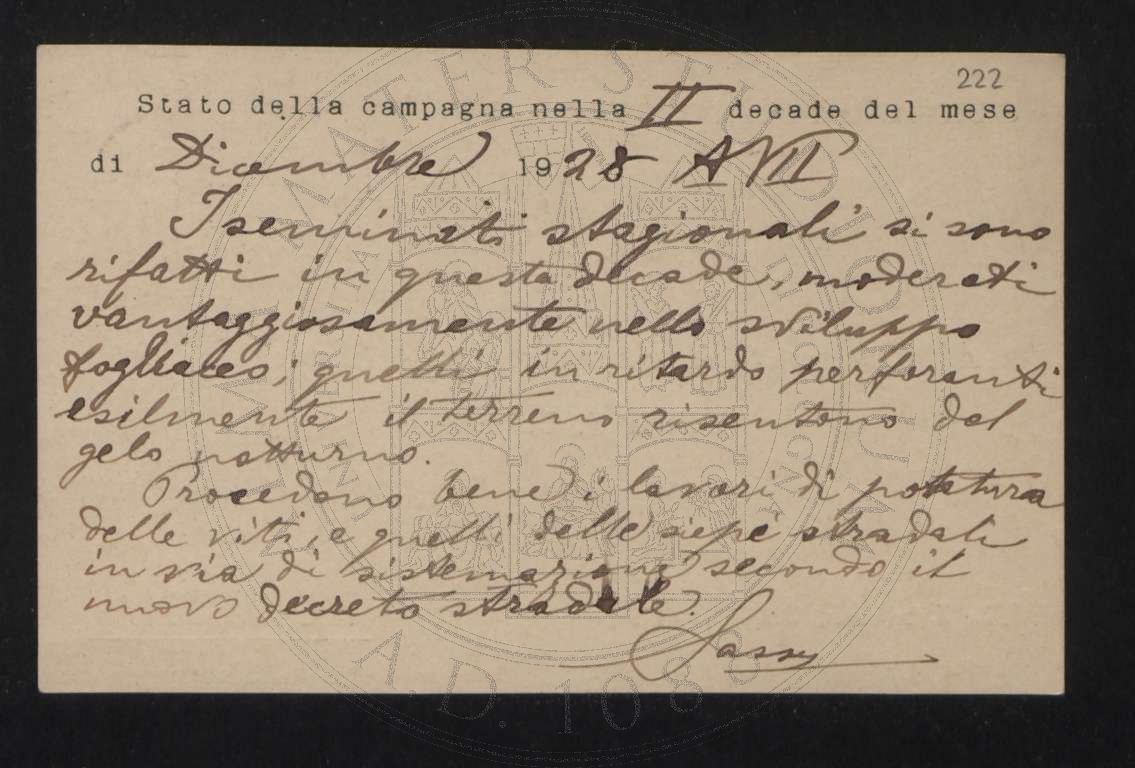 222
Stato della campagna nella II decade del mese
di Dicembre 1928 A VII
I seminati stagionali si sono
rifatti in questa decade, moderati
vantaggiosamente nello sviluppo
fogliaceo; quelli in ritardo perforanti
esilmente il terreno risentono del
gelo notturno.
Procedono bene i lavori di potatura
delle viti, e quelli delle siepi stradali
in via di sistemazione secondo il
nuovo decreto stradale.
ALMA MATER STUDIORUM
A.D. 1088